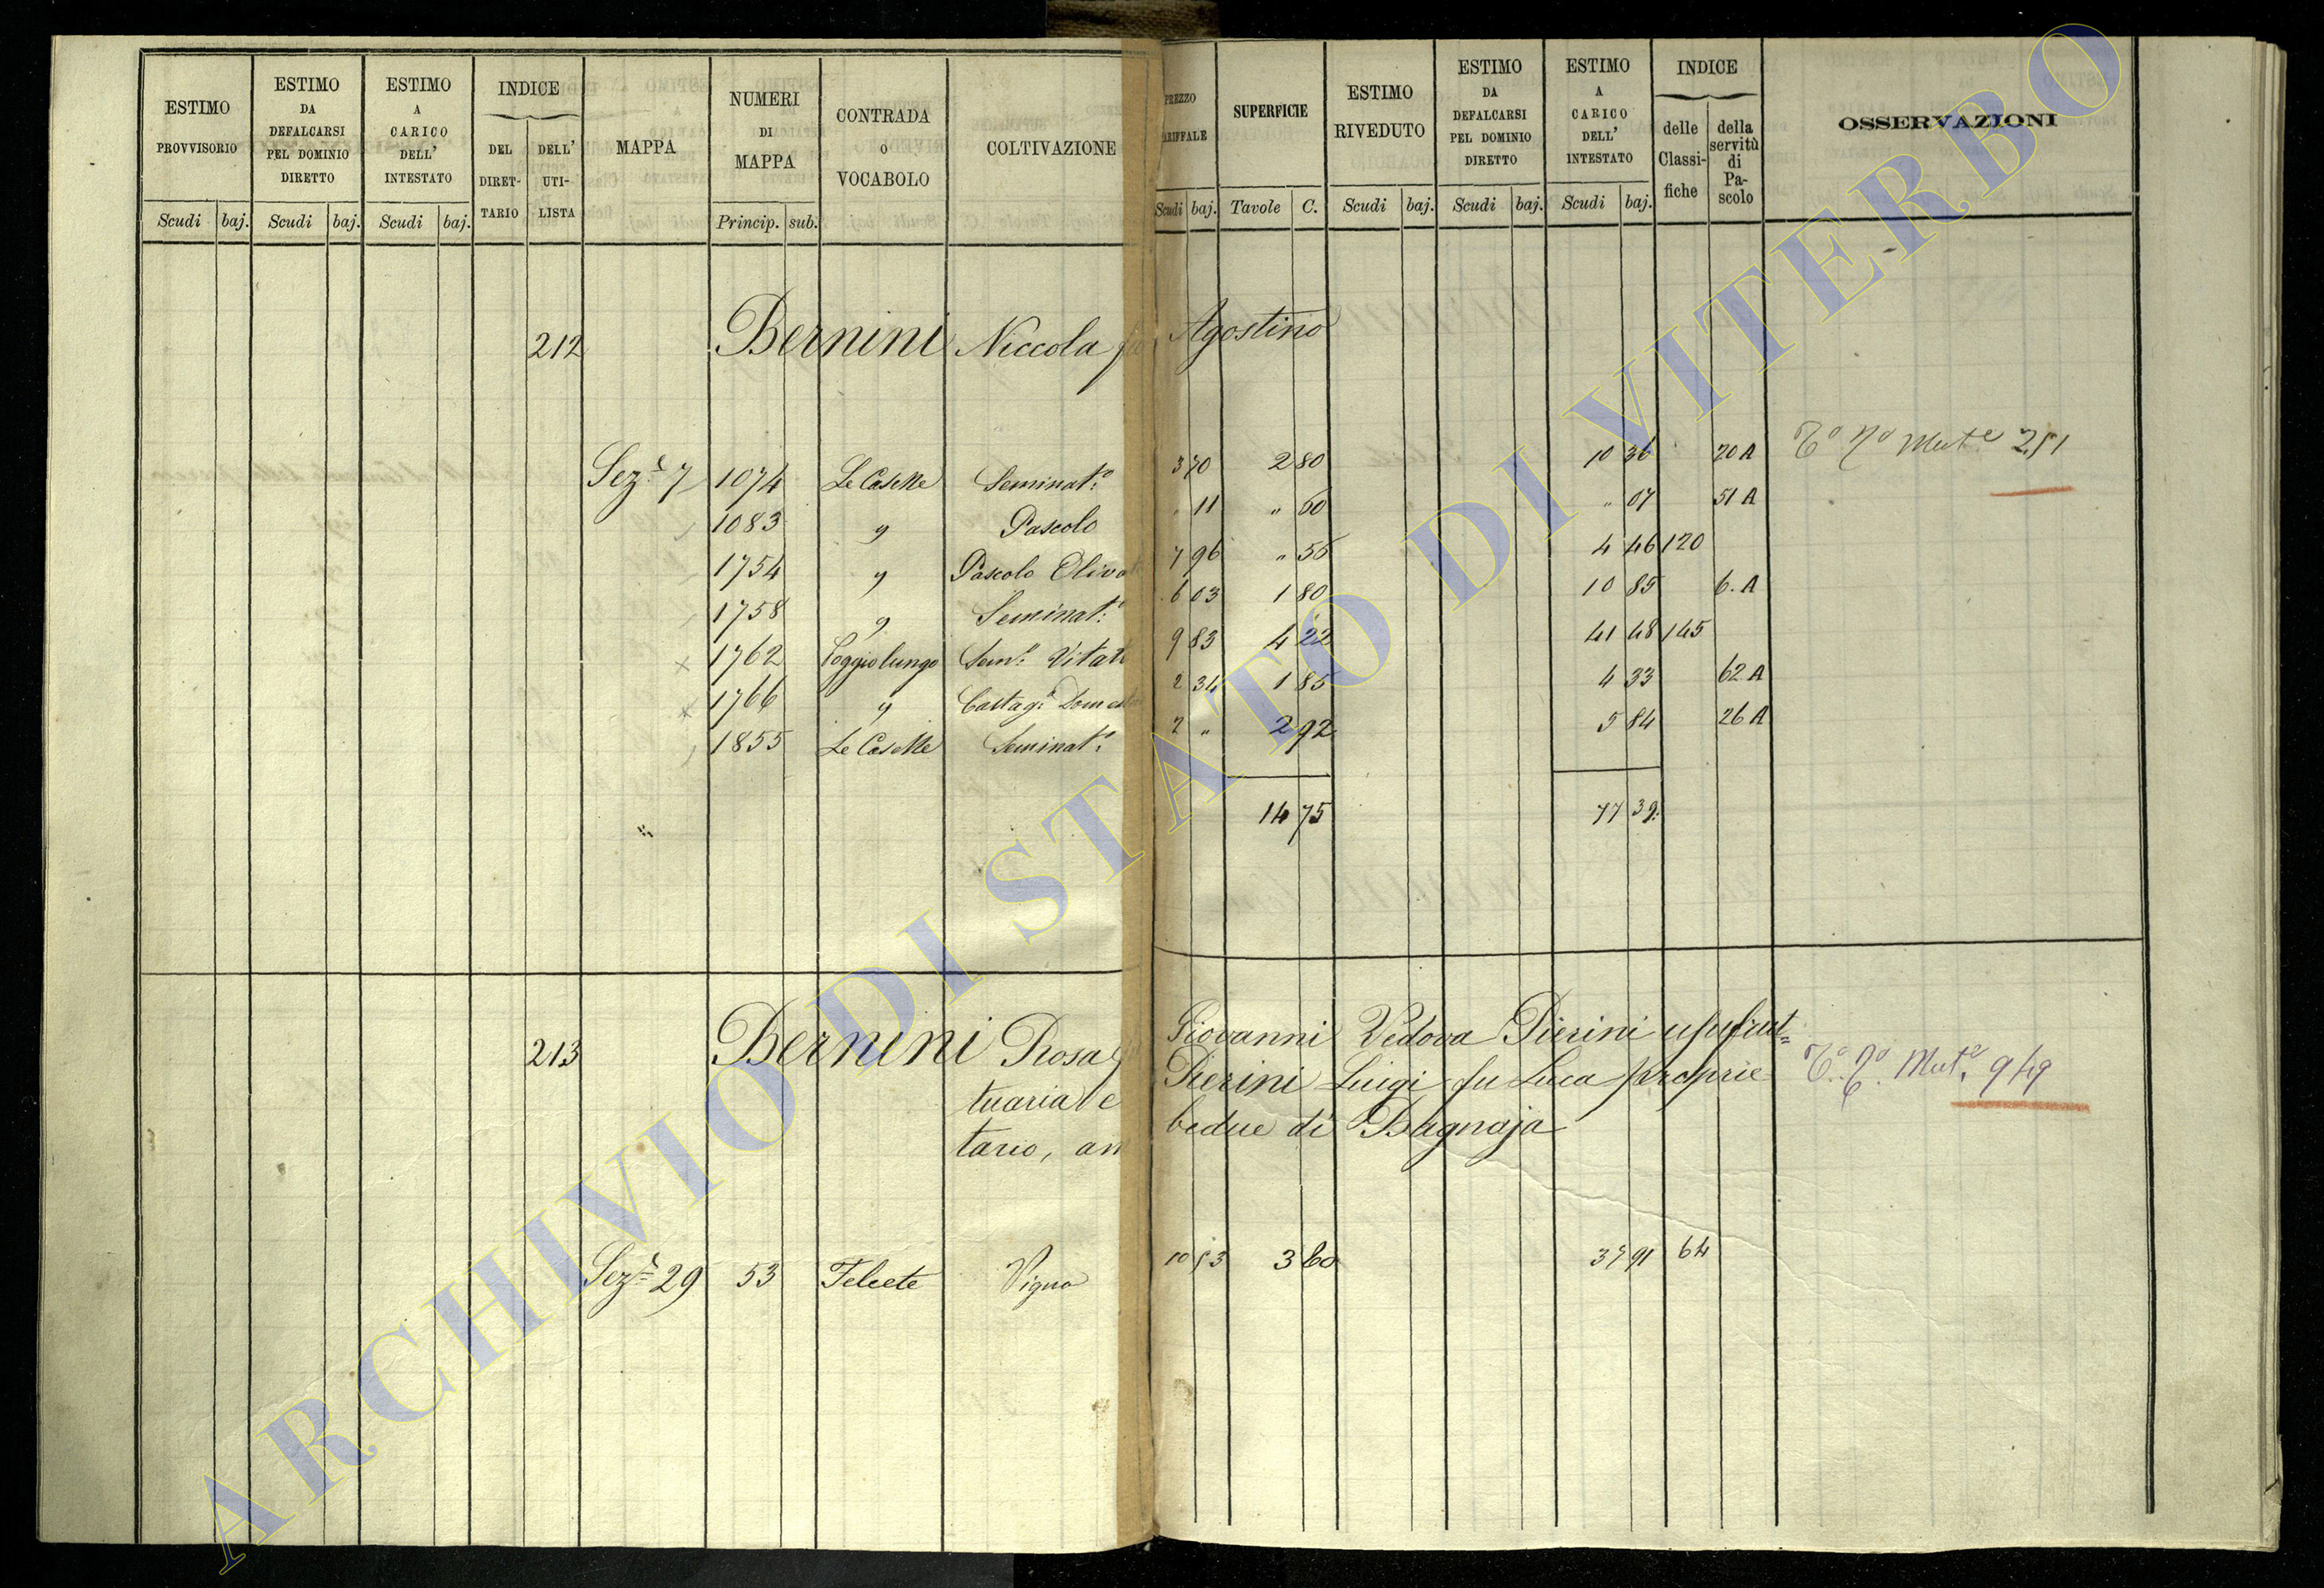 ESTIMO PROVVISORIO
ESTIMO DA DEFALCARSI PEL DOMINIO DIRETTO
ESTIMO A CARICO DELL' INTESTATO
INDICE
DEL DIRET-TARIO
DELL' UTI-LISTA
MAPPA
NUMERI DI MAPPA
CONTRADA O VOCABOLO
COLTIVAZIONE
PREZZO TARIFFALE
SUPERFICIE
ESTIMO RIVEDUTO
ESTIMO DA DEFALCARSI PEL DOMINIO DIRETTO
ESTIMO A CARICO DELL' INTESTATO
INDICE
delle Classi-fiche
della servitù di Pa-scolo
OSSERVAZIONI
Scudi baj. Scudi baj. Scudi baj. Princip. sub. Scudi baj. Tavole C. Scudi baj. Scudi baj. Scudi baj.
212 Bernini Niccola fu Agostino
Sez.e 7 1074 Le Caselle Seminat.o 3 70 2 80 10 36 20 A Mut.e 251
1083 " Pascolo " 11 " 60 " 07 51 A
1754 " Pascolo Olivato 7 96 " 56 4 46 120
1758 " Seminat.o 6 03 1 80 10 85 6. A
1762 Poggiolungo Sem.o Vitato 9 83 4 22 41 48 145
1766 " Castag.o Domest 2 34 1 85 4 33 62 A
1855 Le Caselle Seminat.o 2 " 2 92 5 84 26 A
14 75 77 39.
213 Bernini Rosa Giovanni Vedova Pierini usufrut=
tuaria e Pierini Luigi fu Luca proprie Mut.e 949
tario, ambedue di Bagnaja
Sez.e 29 53 Felcete Vigna 10 53 3 60 37 91 64
ARCHIVIO DI STATO DI VITERBO